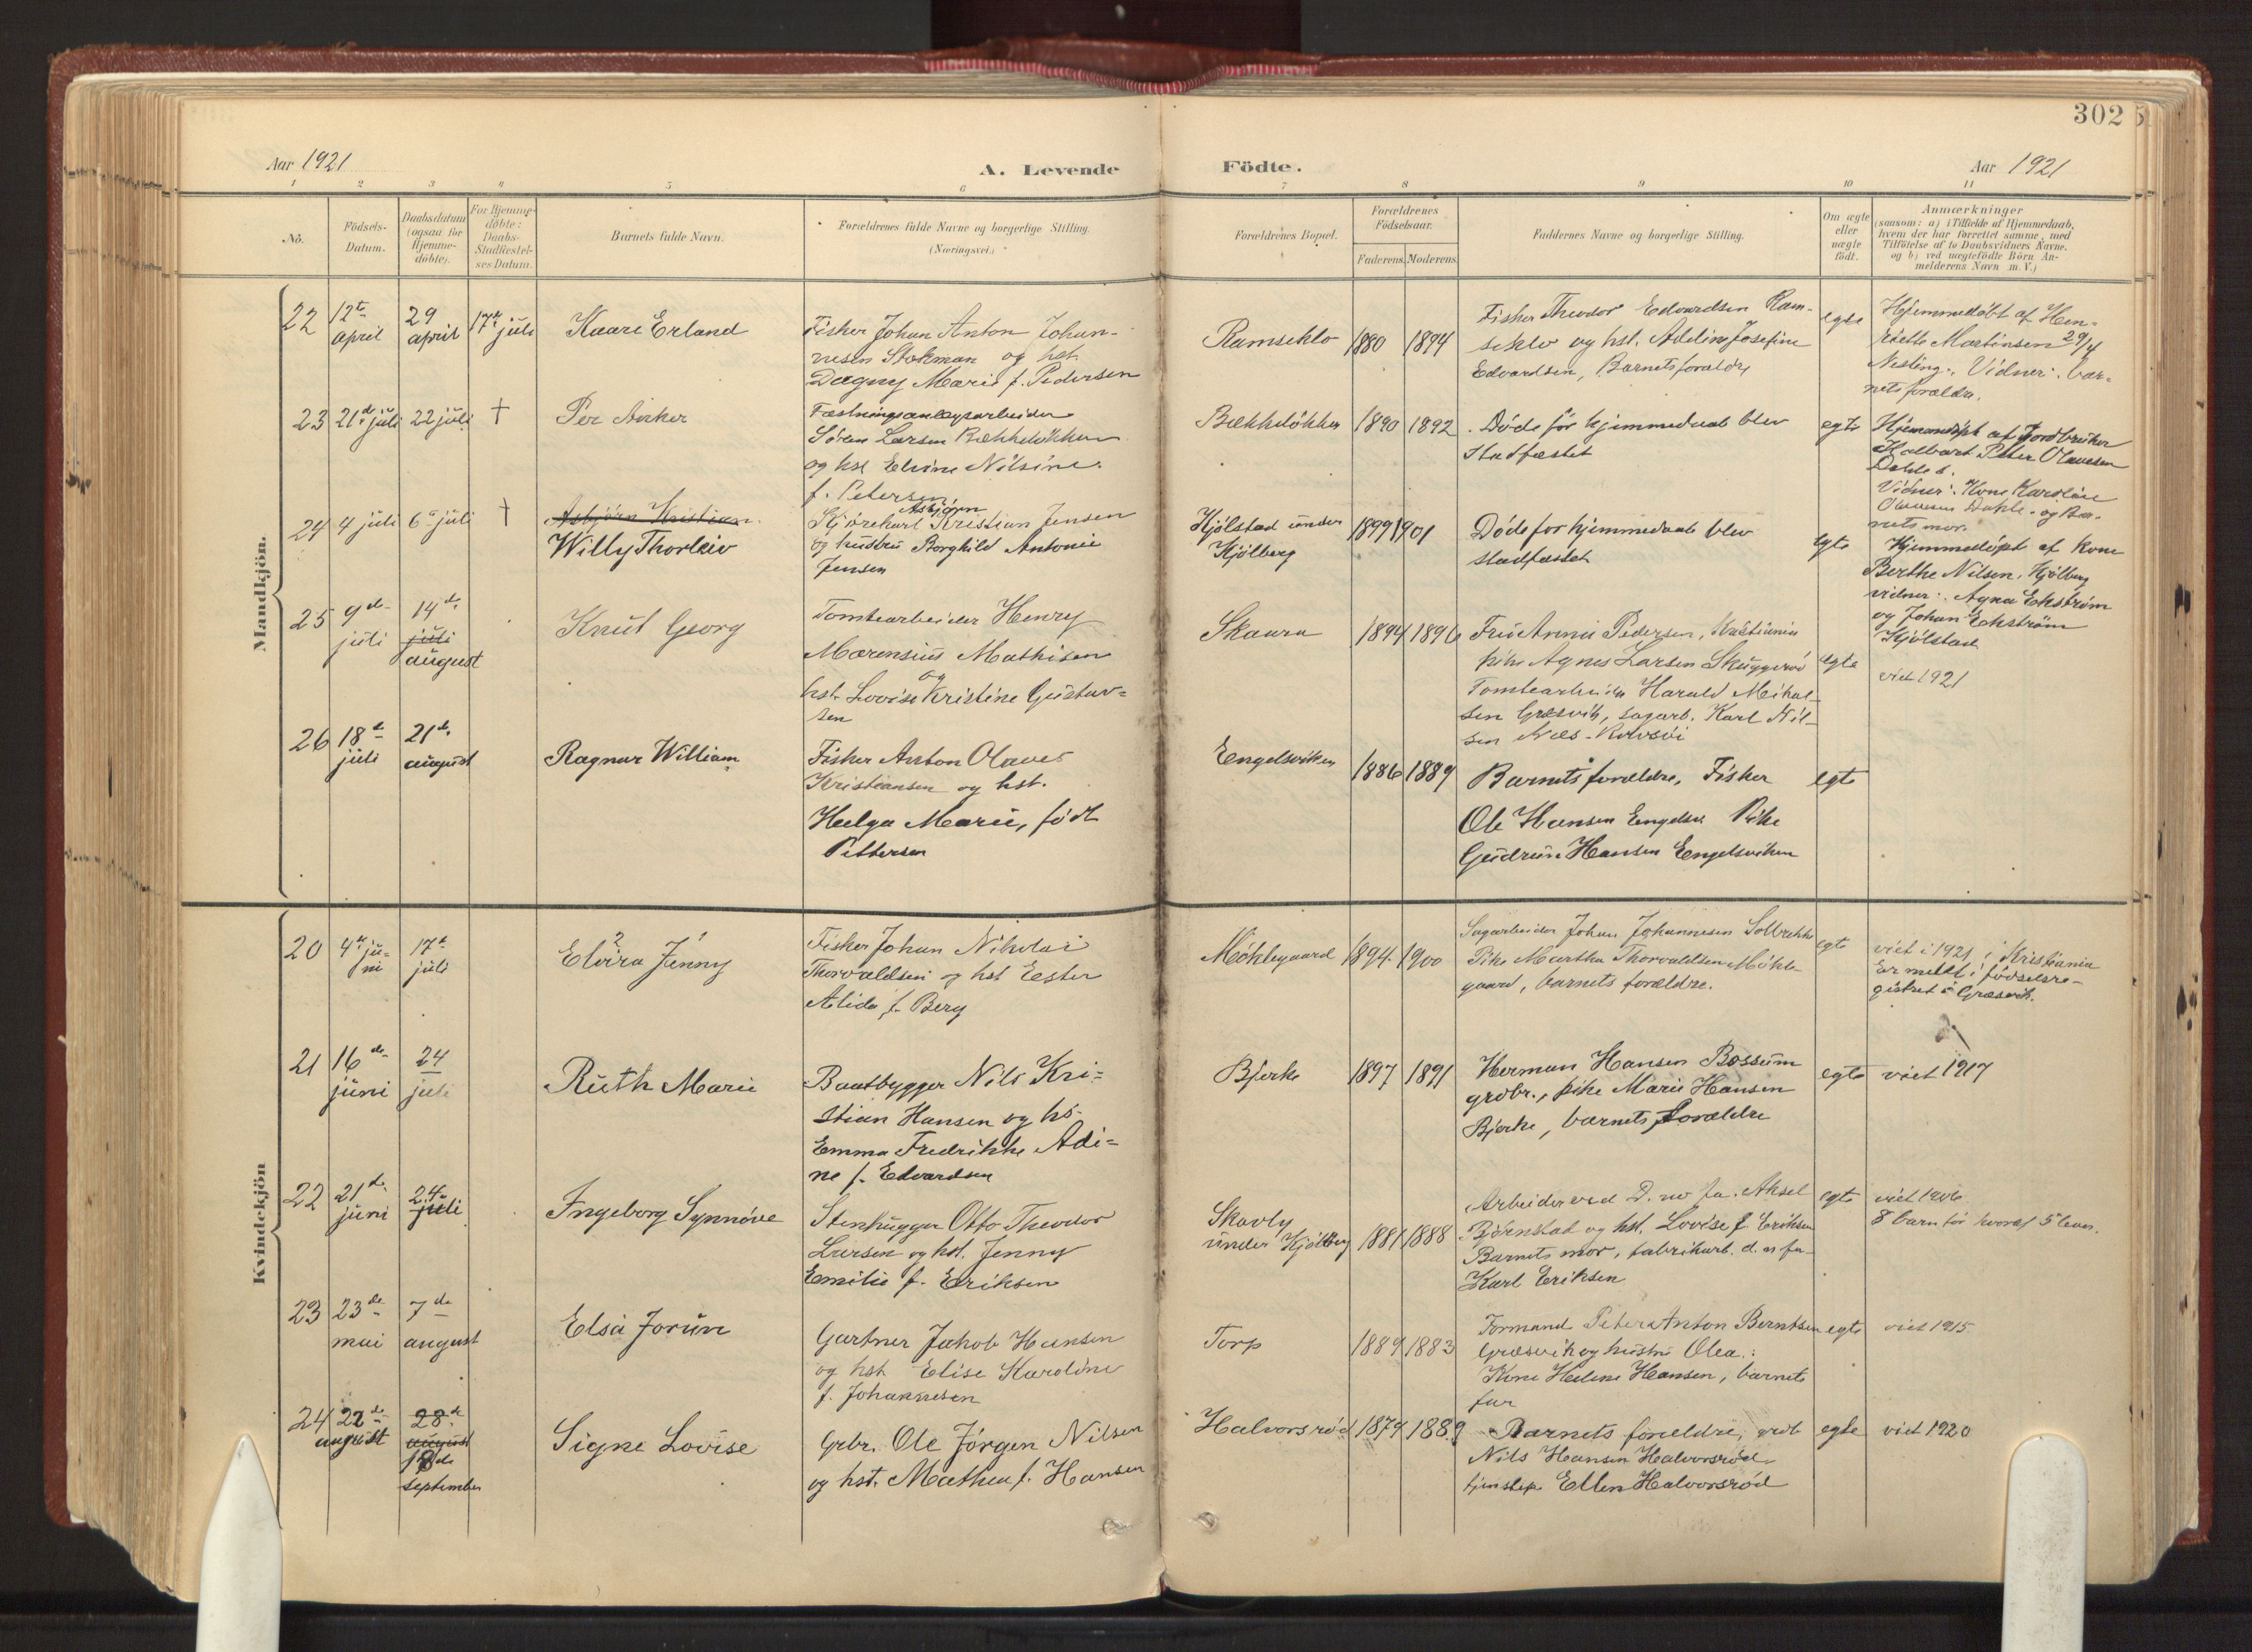 302
Aar 1921
A. Levende
Födte.
Aar 1921
1 2 3 4 5 6 7 8 9 10 11
No.
Födsels-
Datum.
Daabsdatum
(ogsaa for
Hjemme-
döbte).
For Hjemme-
döbte:
Daabs-
Stadfæstel-
ses Datum.
Barnets fulde Navn.
Forældrenes fulde Navne og borgerlige Stilling.
(Næringsvei.)
Forældrenes Bopæl.
Forældrenes
Födselsaar.
Faderens. Moderens.
Faddernes Navne og borgerlige Stilling.
Om ægte
eller
uægte
födt.
Anmærkninger
(saasom: a) i Tilfælde af Hjemmedaab,
hvem der har forrettet samme, med
Tilföielse af to Daabsvidners Navne,
og b) ved uægtefödte Börn An-
melderens Navn m. V.)
Mandkjön.
22
12te
april
29
april
17de juli
Kaare Erland
Fisker Johan Anton Johan-
nesen Stokman og hst.
Dagny Marie f. Pedersen
Ramseklo
1880
1894
Fisker Theodor Edvardsen Ram-
seklo og hst. Adeline Josefine
Edvardsen, Barnets forældre
egte
Hjemmedøbt af Hen-
riette Martinsen 29/4
Vidner: bar-
nets forældre.
23
21de juli
22 juli
†
Per Anker
Fæstningsanlægsarbeider
Søren Larsen Bækkeløkken
og hst Elvine Nilsine
f. Petersen
Bækkeløkken
1890
1892
Døde før hjemmedaab blev
stadfæstet
egte
Hjemmedøpt af Jordbruker
Halbart Peter Olavesen
Dahle.
Vidner: Kone Karoline
Olavesen Dahle og Bar-
nets mor.
24
4 juli
6te juli
†
Asbjørn Kristian
Willy Thorleiv
Asbjørn
Kjørekarl Kristian Jensen
og hustru Borghild Antonie
Jensen
Kjølstad under
Kjølberg
1899
1901
Døde før hjemmedaab blev
stadfæstet
egte
Hjemmedøpt af Kone
Berthe Nilsen, Kjølberg
vidner: Agna Ekstrøm
og Johan Ekstrøm
Kjølstad
25
9de
juli
14de
juli
august
Knut Georg
Tomtearbeider Henry
Marensius Mathisen
og
hst. Lovise Kristine Gustav-
sen
Skaara
1894
1896
Fru Anna Pedersen, Kristiania
pike Agnes Larsen Skuggerød
Tomtearbeider Harald Mikal-
sen Gresvik, sagarb. Karl Nil-
sen Næs
egte
viet 1921
26
18de
juli
21de
august
Ragnar William
Fisker Anton Olaves
Kristiansen og hst.
Helga Marie, født
Pettersen
Engelsviken
1886
1889
Barnets forældre, Fisker
Ole Hansen Engelsv. Pike
Gudrun Hansen Engelsviken
egte
Kvindekjön
20
4de ju-
ni
17de
juli
2 1
Elvira Jenny
Fisker Johan Nikolai
Thorvaldsen og hst Ester
Alida f. Berg
Møklegaard
1894
1900
Sagarbeider Johan Johannesen Solbrekke
Pike Martha Thorvaldsen Møkle-
gaard, barnets forældre.
egte
viet i 1921 i Kristiania
Er meldt i fødselsre-
gistret i Græsvik.
21
16de
juni
24
juli
Ruth Marie
Baatbygger Nils Kri-
stian Hansen og hs.
Emma Fredrikke Adi-
ne f. Edvardsen
Bjerke
1897
1891
Herman Hansen Bossum
grdbr., pike Marie Hansen
Bjerke, barnets forældre
egte
viet 1917
22
21de
juni
24
juli
Ingeborg Synnøve
Stenhugger Otto Theodor
Larsen og hst. Jenny
Emilie f. Eriksen
Skovly
under Kjølberg
1881
1888
Arbeider ved D. no fa. Aksel
Bjørnstad og hst. Lovise f. Eriksen
Barnets mor, fabrikarb. d. no fa.
Karl Eriksen
egte
viet 1906
8 barn før hvoraf 5 lever.
23
23de
mai
7de
august
Elsa Jorun
Gartner Jakob Hansen
og hst. Elise Karoline
f. Johannesen
Torp
1889
1883
Formand Peter Anton Berntsen
Græsvik og hustru Olea:
Kone Helene Hansen, barnets
far
egte
viet 1915
24
22de
august
28de
august
18de
september
Signe Lovise
Grbr. Ole Jørgen Nilsen
og hst. Mathea f. Hansen
Halvorsrød
1879
1889
Barnets forældre,
Nils Hansen Halvorsrød
tjenstep. Ellen Halvorsrød
egte
viet 1920